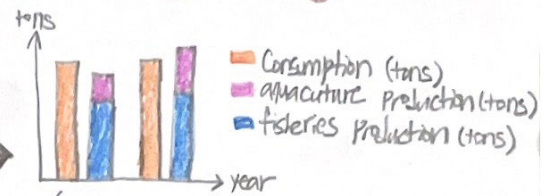 tons
Consumption (tons)
aquacuture Production (tons)
fisleries Production (tons)
year